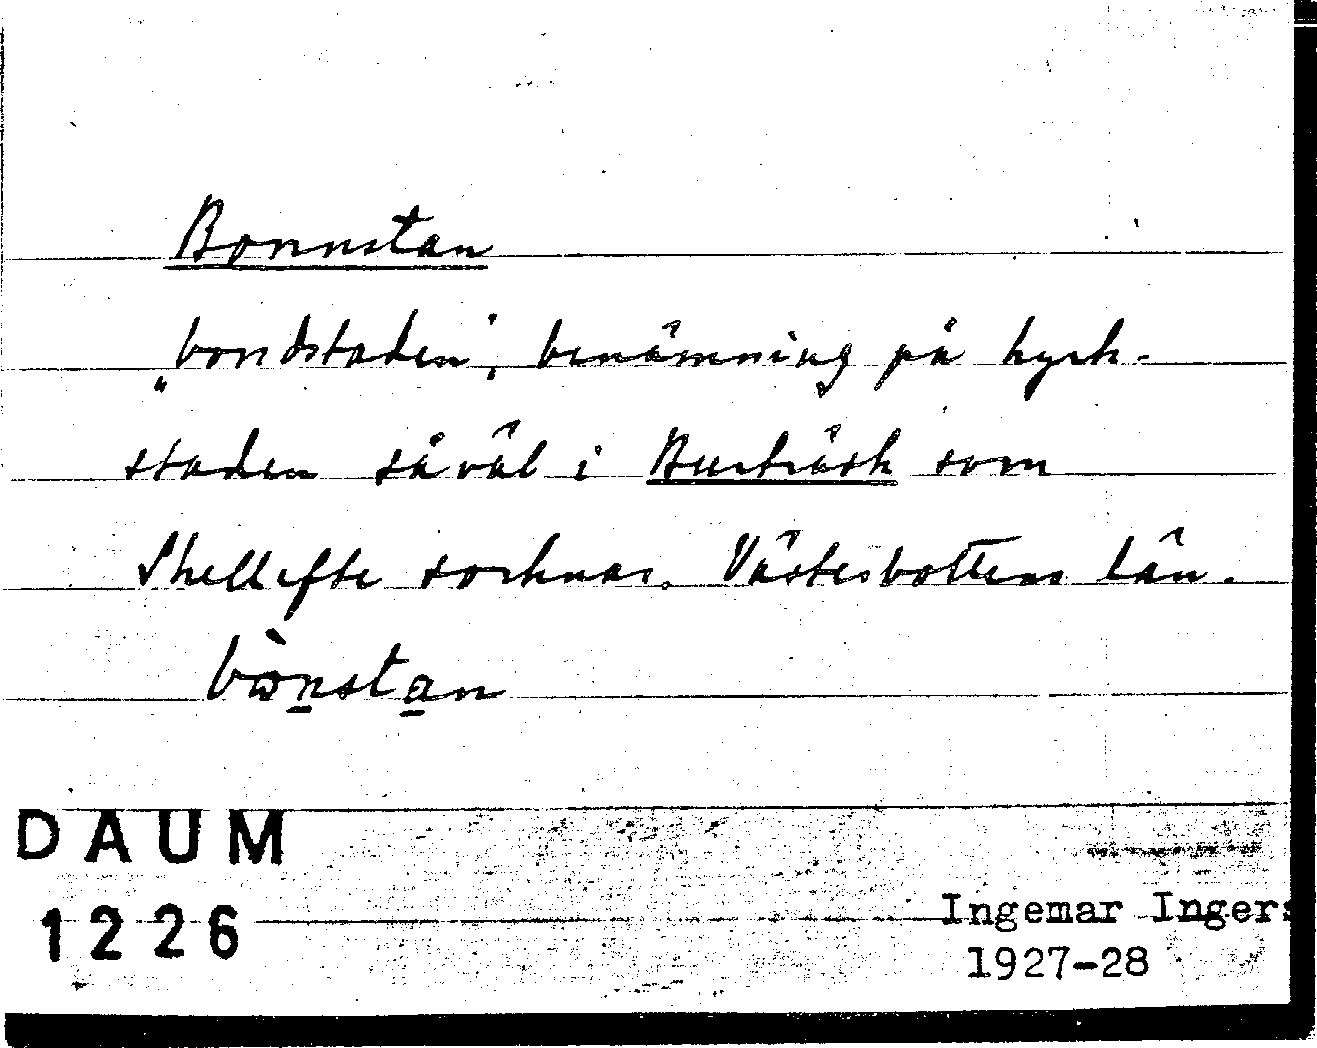 Bonnstan
„bondstaden", benämning på kyrk-
staden såväl i Burträsk som
Skellefte socknar. Västerbottens län.
bònstan
DAUM
1226
Ingemar Ingers
1927-28